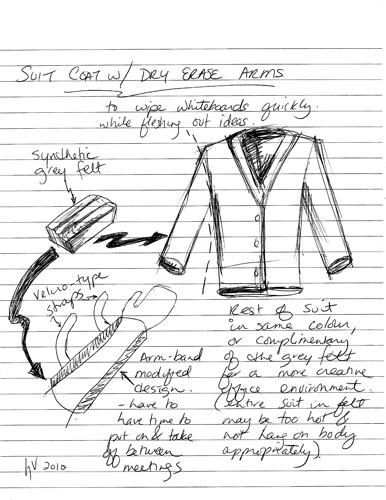 SUIT COAT W/ DRY ERASE ARMS
to wipe whiteboards quickly.
while fleshing out ideas.
synthetic
grey felt
velcro-type
straps
Arm-band
modyfied
design.
- have to
have time to
put on & take
off between
meetings
Rest of suit
in same colour,
or complimentary
of the grey felt
for a more creative
office environment.
(entire suit in felt
may be too hot &
not hang on body
appropriately).
HV 2010